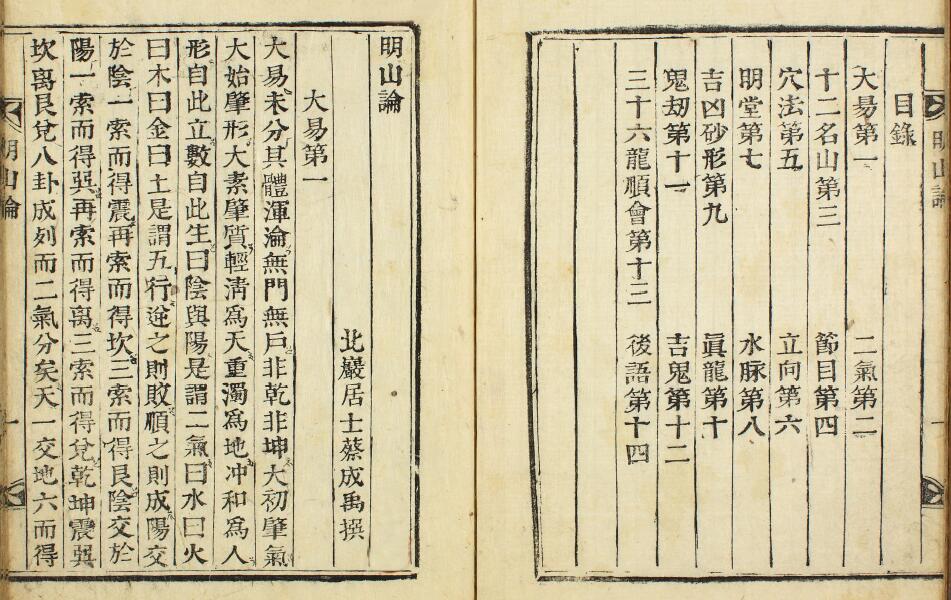 明山論
一
目錄
大昜第一 二氣第二
十二名山第三 節目第四
穴法第五 立向第六
明堂第七 水脉第八
吉凶砂形第九 眞龍第十
鬼刼第十一 吉鬼第十二
三十六龍順會第十三 後語第十四
明山論
北巖居士蔡成禹撰
大昜第一
大易未分其體渾淪無門無戶非乾非坤大初肇氣
大始肇形大素肇質輕淸爲天重濁爲地冲和爲人
形自此立數自此生曰陰與陽是謂二氣曰水曰火
曰木曰金曰土是謂五行逆之則敗順之則成陽交
於陰一索而得震再索而得坎三索而得艮陰交於
陽一索而得巽再索而得离三索而得兌乾坤震巽
坎离艮兌八卦成列而二氣分矣天一交地六而得
明山論
一